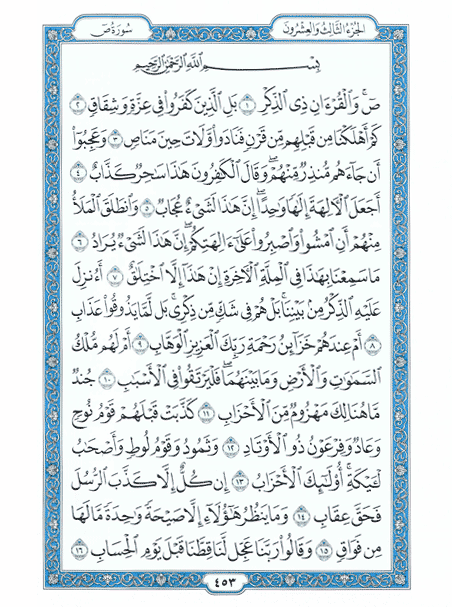 الجزء الثالث والعشرون
سورة ص
بِسْمِ اللَّهِ الرَّحْمَٰنِ الرَّحِيمِ
صٓ ۚ وَالْقُرْءَانِ ذِى الذِّكْرِ ١ بَلِ الَّذِينَ كَفَرُوا۟ فِى عِزَّةٍ وَشِقَاقٍ ٢
كَمْ أَهْلَكْنَا مِن قَبْلِهِم مِّن قَرْنٍ فَنَادَوا۟ وَّلَاتَ حِينَ مَنَاصٍ ٣ وَعَجِبُوٓا۟
أَن جَآءَهُم مُّنذِرٌ مِّنْهُمْ ۖ وَقَالَ الْكَٰفِرُونَ هَٰذَا سَٰحِرٌ كَذَّابٌ ٤
أَجَعَلَ الْءَالِهَةَ إِلَٰهًا وَٰحِدًا ۖ إِنَّ هَٰذَا لَشَىْءٌ عُجَابٌ ٥ وَانطَلَقَ الْمَلَأُ
مِنْهُمْ أَنِ امْشُوا۟ وَاصْبِرُوا۟ عَلَىٰٓ ءَالِهَتِكُمْ ۖ إِنَّ هَٰذَا لَشَىْءٌ يُرَادُ ٦
مَا سَمِعْنَا بِهَٰذَا فِى الْمِلَّةِ الْءَاخِرَةِ إِنْ هَٰذَآ إِلَّا اخْتِلَٰقٌ ٧ أَءُنزِلَ
عَلَيْهِ الذِّكْرُ مِنۢ بَيْنِنَا ۚ بَلْ هُمْ فِى شَكٍّ مِّن ذِكْرِى ۖ بَل لَّمَّا يَذُوقُوا۟ عَذَابِ
٨ أَمْ عِندَهُمْ خَزَآئِنُ رَحْمَةِ رَبِّكَ الْعَزِيزِ الْوَهَّابِ ٩ أَمْ لَهُم مُّلْكُ
السَّمَٰوَٰتِ وَالْأَرْضِ وَمَا بَيْنَهُمَا ۖ فَلْيَرْتَقُوا۟ فِى الْأَسْبَٰبِ ١٠ جُندٌ
مَّا هُنَالِكَ مَهْزُومٌ مِّنَ الْأَحْزَابِ ١١ كَذَّبَتْ قَبْلَهُمْ قَوْمُ نُوحٍ
وَعَادٌ وَفِرْعَوْنُ ذُو الْأَوْتَادِ ١٢ وَثَمُودُ وَقَوْمُ لُوطٍ وَأَصْحَٰبُ
لْـَٔيْكَةِ ۚ أُو۟لَٰٓئِكَ الْأَحْزَابُ ١٣ إِن كُلٌّ إِلَّا كَذَّبَ الرُّسُلَ
فَحَقَّ عِقَابِ ١٤ وَمَا يَنظُرُ هَٰٓؤُلَآءِ إِلَّا صَيْحَةً وَٰحِدَةً مَّا لَهَا
مِن فَوَاقٍ ١٥ وَقَالُوا۟ رَبَّنَا عَجِّل لَّنَا قِطَّنَا قَبْلَ يَوْمِ الْحِسَابِ ١٦
٤٥٣